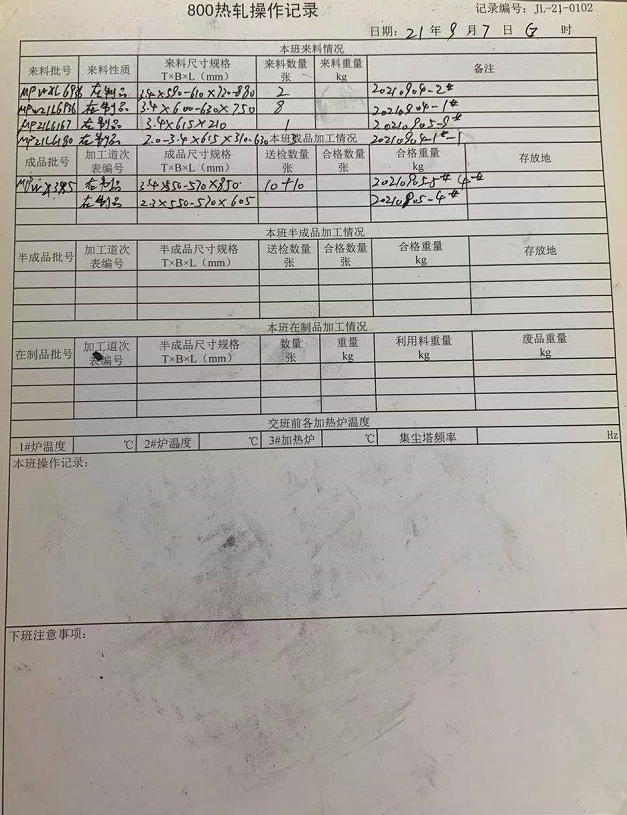 800热轧操作记录 记录编号：JL-21-0102
日期：21年9月7日 时
本班来料情况
来料批号 来料性质 来料尺寸规格 T×B×L（mm） 来料数量 张 来料重量 kg 备注
在制品 3.4×590-610×720-880 2 20210904-2#
在制品 3.4×600-630×750 8 20210904-1#
MP21L6167 在制品 3.4×615×210 1
在制品 2.0-3.4×615×310-630
本班成品加工情况
成品批号 加工道次表编号 成品尺寸规格 T×B×L（mm） 送检数量 张 合格数量 张 合格重量 kg 存放地
在制品 3.4×550-570×850 10+10 20210905-5# 4#
在制品 2.3×550-570×605 20210905-4#
本班半成品加工情况
半成品批号 加工道次表编号 半成品尺寸规格 T×B×L（mm） 送检数量 张 合格数量 张 合格重量 kg 存放地
本班在制品加工情况
在制品批号 加工道次表编号 半成品尺寸规格 T×B×L（mm） 数量 张 重量 kg 利用料重量 kg 废品重量 kg
交班前各加热炉温度
1#炉温度 ℃ 2#炉温度 ℃ 3#加热炉 ℃ 集尘塔频率 Hz
本班操作记录：
下班注意事项：